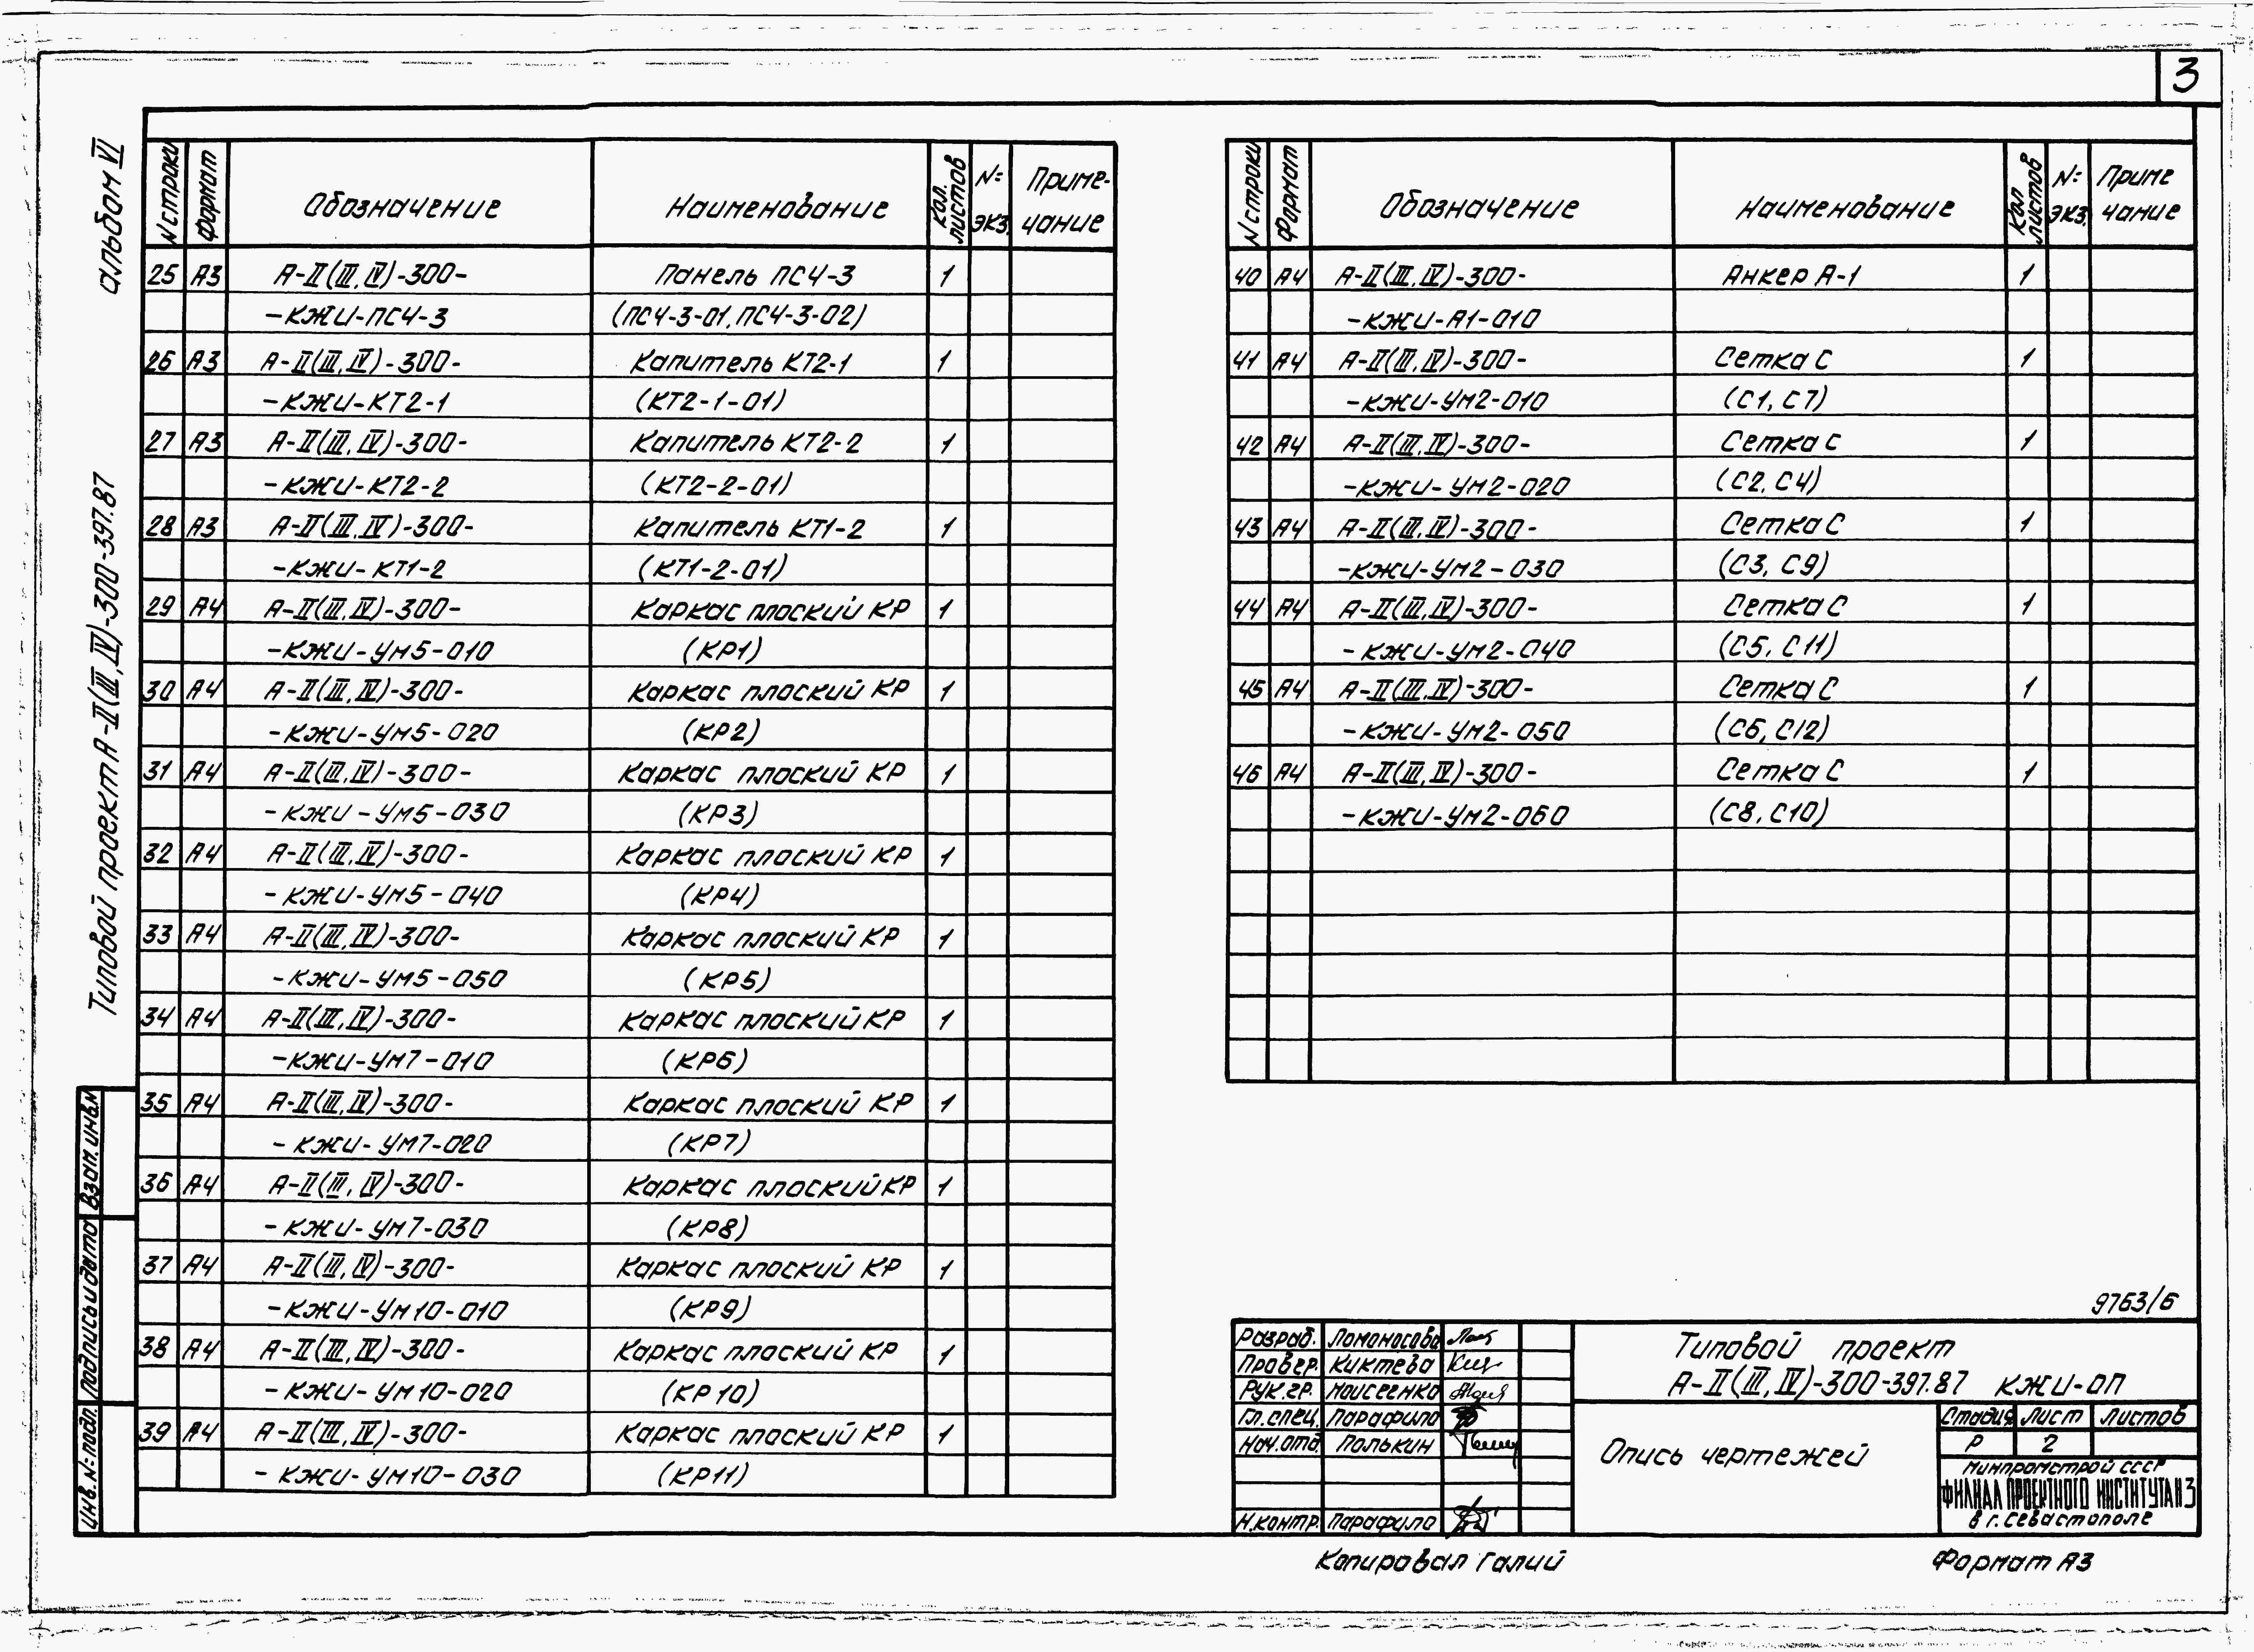 3
альбом VI
Типовой проект А-II(III,IV)-300-397.87
Взам. инв.N
Подпись и дата
Инв. №: подл.
N строки Формат Обозначение Наименование Кол. листов №: экз. Приме-
чание
25 А3 А-II(III,IV)-300- Панель ПС4-3 1
-КЖИ-ПС4-3 (ПС4-3-01, ПС4-3-02)
26 А3 А-II(III,IV)-300- Капитель КТ2-1 1
-КЖИ-КТ2-1 (КТ2-1-01)
27 А3 А-II(III,IV)-300- Капитель КТ2-2 1
-КЖИ-КТ2-2 (КТ2-2-01)
28 А3 А-II(III,IV)-300- Капитель КТ1-2 1
-КЖИ-КТ1-2 (КТ1-2-01)
29 А4 А-II(III,IV)-300- Каркас плоский КР 1
-КЖИ-УМ5-010 (КР1)
30 А4 А-II(III,IV)-300- Каркас плоский КР 1
-КЖИ-УМ5-020 (КР2)
31 А4 А-II(III,IV)-300- Каркас плоский КР 1
-КЖИ-УМ5-030 (КР3)
32 А4 А-II(III,IV)-300- Каркас плоский КР 1
-КЖИ-УМ5-040 (КР4)
33 А4 А-II(III,IV)-300- Каркас плоский КР 1
-КЖИ-УМ5-050 (КР5)
34 А4 А-II(III,IV)-300- Каркас плоский КР 1
-КЖИ-УМ7-010 (КР6)
35 А4 А-II(III,IV)-300- Каркас плоский КР 1
-КЖИ-УМ7-020 (КР7)
36 А4 А-II(III,IV)-300- Каркас плоский КР 1
-КЖИ-УМ7-030 (КР8)
37 А4 А-II(III,IV)-300- Каркас плоский КР 1
-КЖИ-УМ10-010 (КР9)
38 А4 А-II(III,IV)-300- Каркас плоский КР 1
-КЖИ-УМ10-020 (КР10)
39 А4 А-II(III,IV)-300- Каркас плоский КР 1
-КЖИ-УМ10-030 (КР11)
N строки Формат Обозначение Наименование Кол листов №: экз. Приме
чание
40 А4 А-II(III,IV)-300- Анкер А-1 1
-КЖИ-А1-010
41 А4 А-II(III,IV)-300- Сетка С 1
-КЖИ-УМ2-010 (С1, С7)
42 А4 А-II(III,IV)-300- Сетка С 1
-КЖИ-УМ2-020 (С2, С4)
43 А4 А-II(III,IV)-300- Сетка С 1
-КЖИ-УМ2-030 (С3, С9)
44 А4 А-II(III,IV)-300- Сетка С 1
-КЖИ-УМ2-040 (С5, С11)
45 А4 А-II(III,IV)-300- Сетка С 1
-КЖИ-УМ2-050 (С6, С12)
46 А4 А-II(III,IV)-300- Сетка С 1
-КЖИ-УМ2-060 (С8, С10)
9763/6
Разраб. Ломоносова
Провер. Киктева
Рук.гр. Моисеенко
Гл.спец. Парафило
Нач.отд. Полькин
Н.контр. Парафило
Типовой проект
А-II(III,IV)-300-397.87 КЖИ-ОП
Опись чертежей
Стадия Лист Листов
Р 2
Минпромстрой СССР
ФИЛИАЛ ПРОЕКТНОГО ИНСТИТУТА N3
в г. Севастополе
Копировал Галий
Формат А3